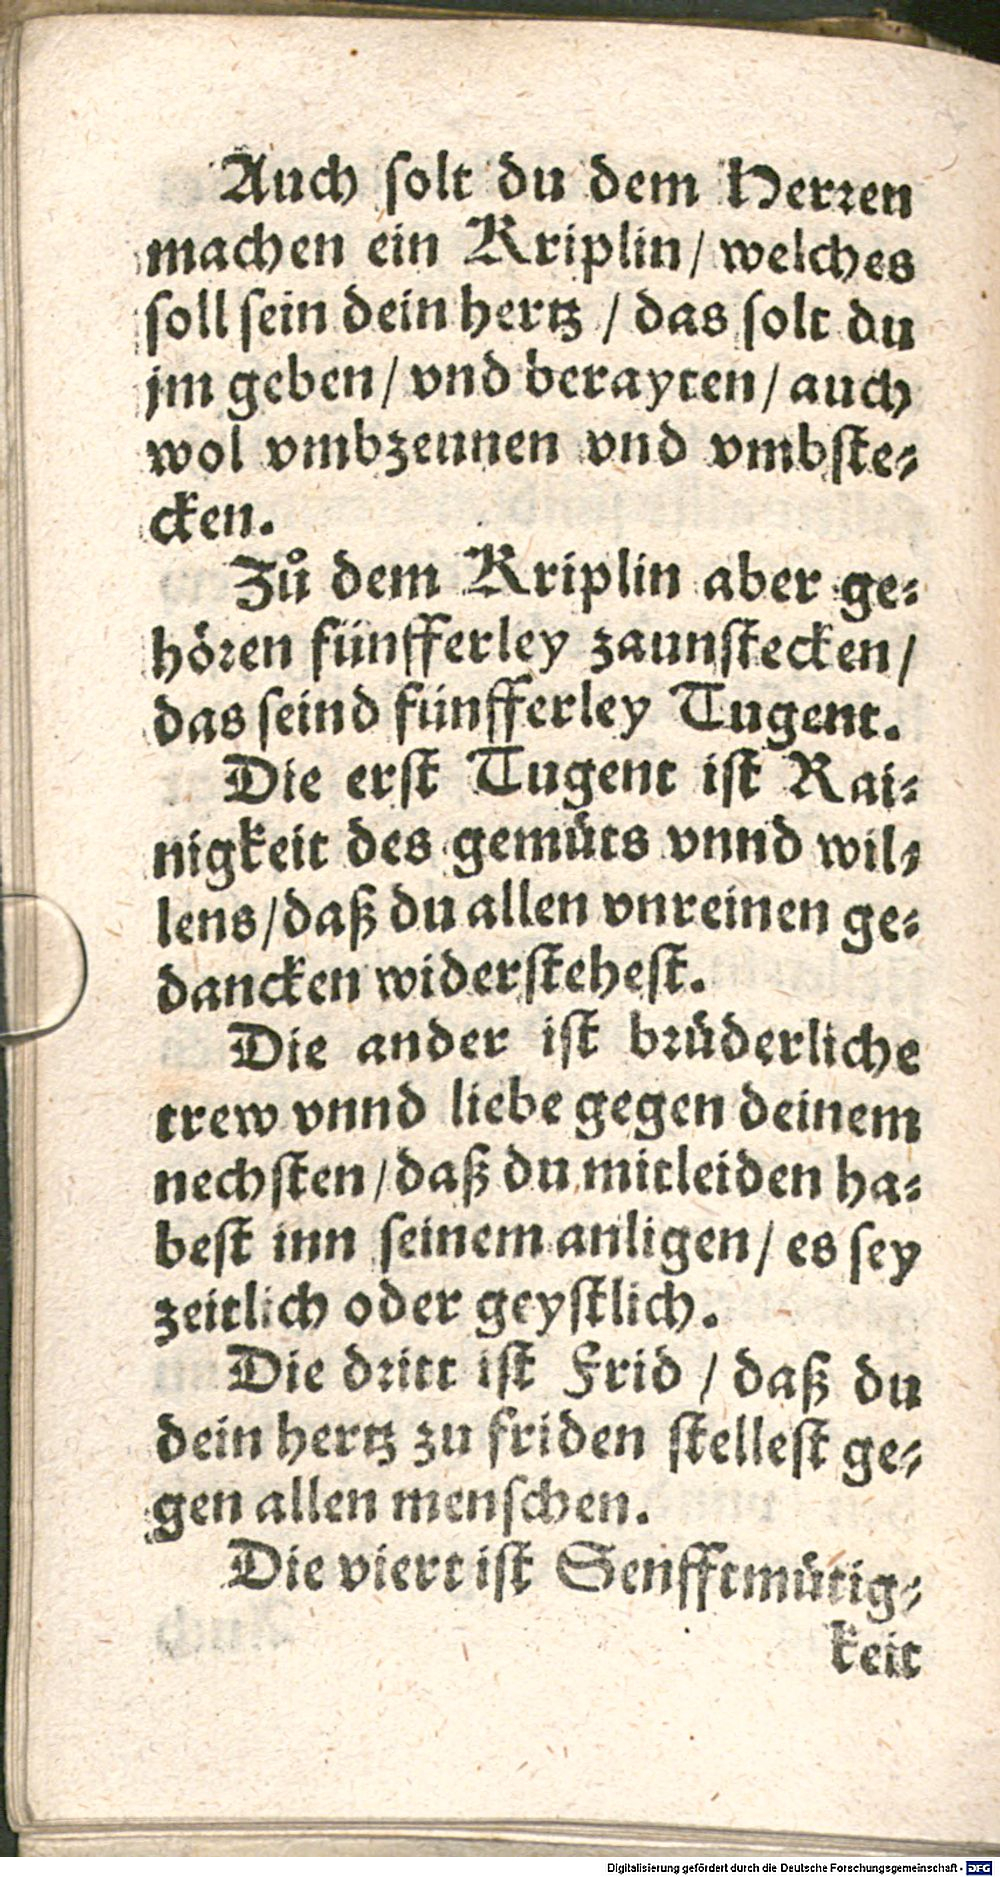 Auch solt du dem Herren
machen ein Kriplin / welches
soll sein dein hertz / das solt du
jm geben / vnd berayten / auch
wol vmbzeunnen vnd vmbste-
cken.
Zů dem Kriplin aber ge-
hören fünfferley zaunstecken /
das seind fünfferley Tugent.
Die erst Tugent ist Rai-
nigkeit des gemüts vnnd wil-
lens / daß du allen vnreinen ge-
dancken widerstehest.
Die ander ist brüderliche
trew vnnd liebe gegen deinem
nechsten / daß du mitleiden ha-
best inn seinem anligen / es sey
zeitlich oder geystlich.
Die dritt ist Frid / daß du
dein hertz zu friden stellest ge-
gen allen menschen.
Die viert ist Senfftmütig-
keit
Digitalisierung gefördert durch die Deutsche Forschungsgemeinschaft - DFG